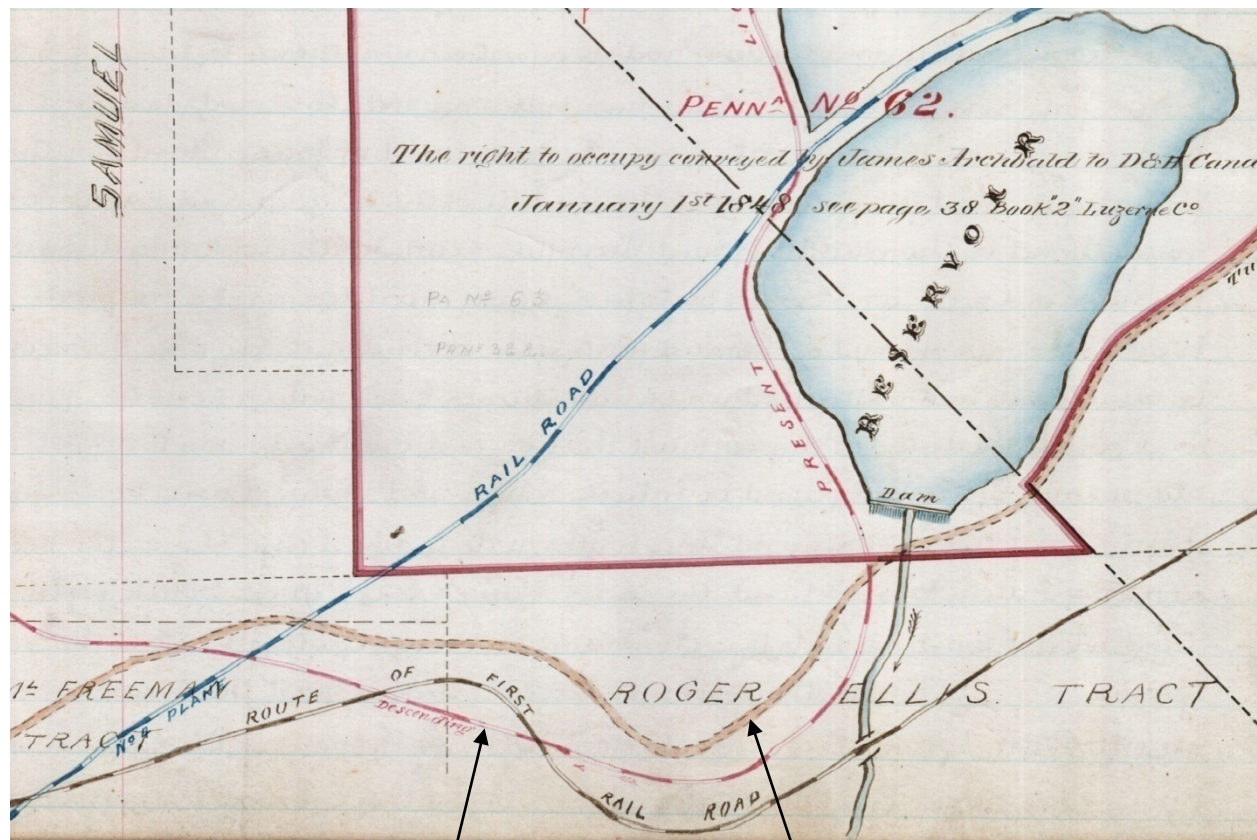 SAMUEL
PENNᴬ Nº 62.
The right to occupy conveyed by James Archbald to D&H Cana
January 1st 1848 see page 38 Book "2" Luzerne Co
RESERVOIR
PA Nº 63
RAIL ROAD
PRESENT
Dam
FREEMAN
TRACT
Nº 4 PLANE
ROUTE OF FIRST RAIL ROAD
Descending
ROGER ELLIS. TRACT